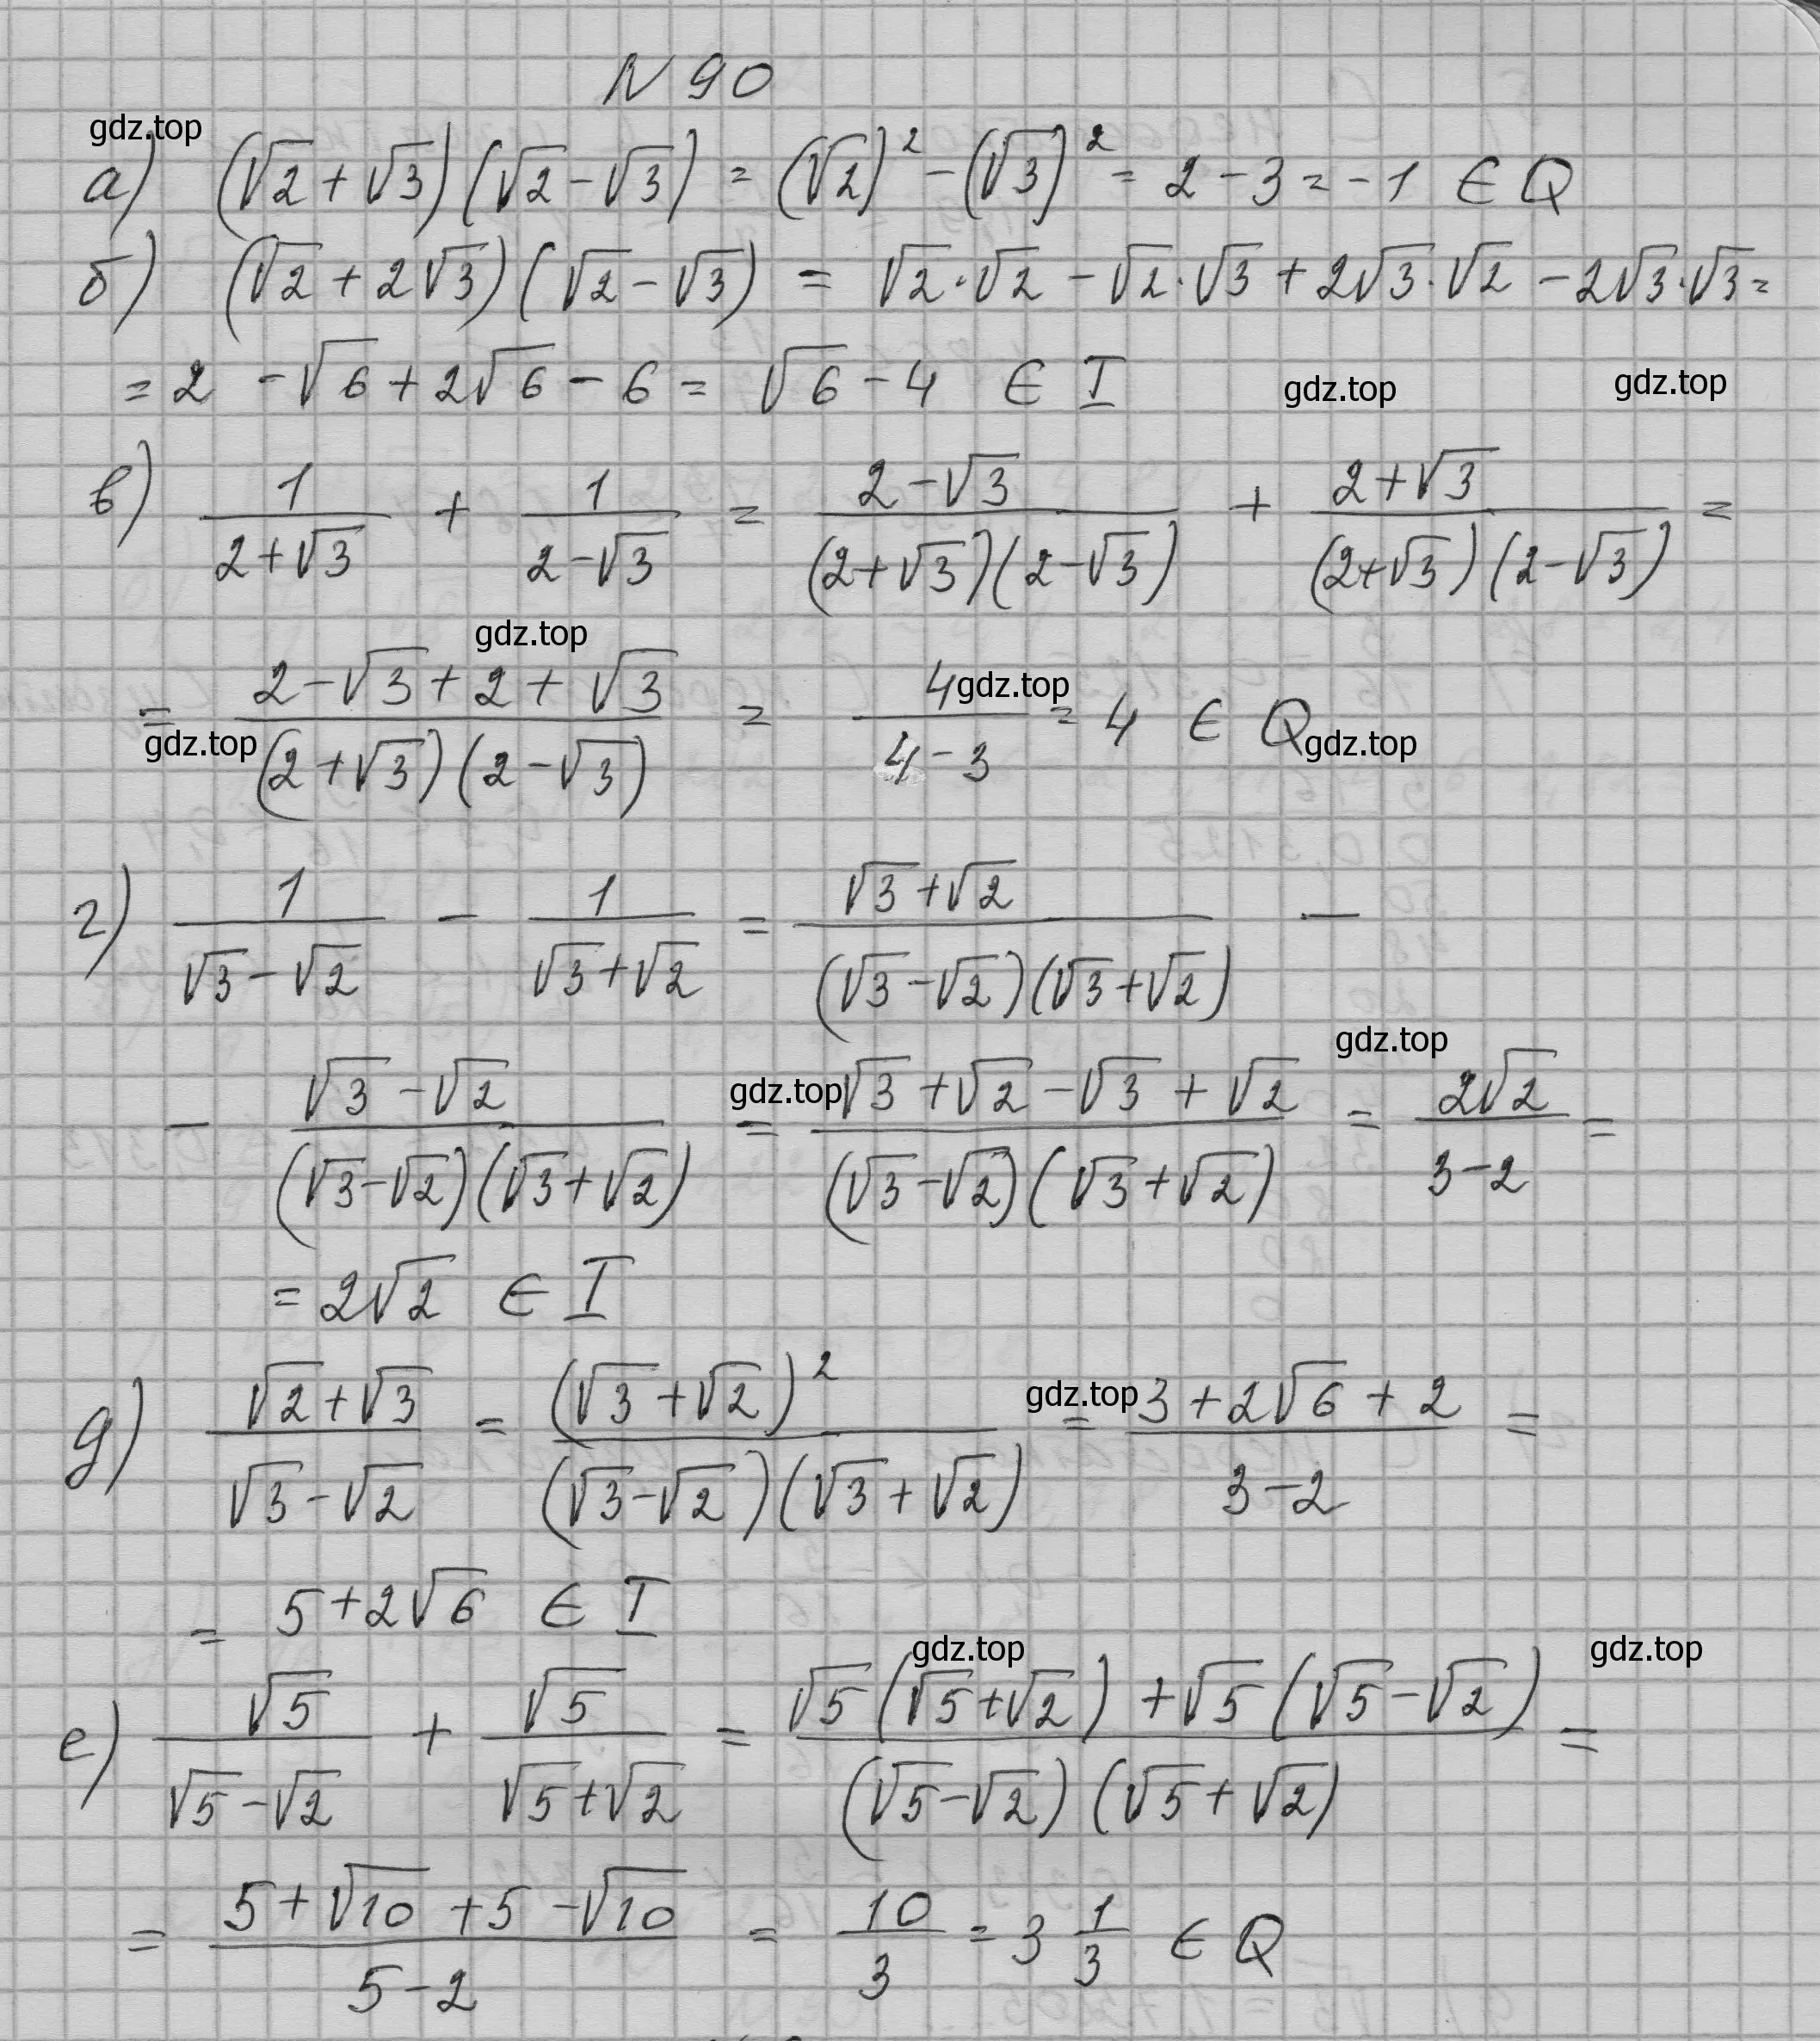 N 90
gdz.top
а) (√2 + √3)(√2 - √3) = (√2)² - (√3)² = 2 - 3 = -1 ∈ Q
б) (√2 + 2√3)(√2 - √3) = √2·√2 - √2·√3 + 2√3·√2 - 2√3·√3 =
= 2 - √6 + 2√6 - 6 = √6 - 4 ∈ I gdz.top gdz.top
в) 1/(2+√3) + 1/(2-√3) = (2-√3)/((2+√3)(2-√3)) + (2+√3)/((2+√3)(2-√3)) =
gdz.top
= (2-√3+2+√3)/((2+√3)(2-√3)) = 4/(4-3) = 4 ∈ Q
gdz.top gdz.top gdz.top
г) 1/(√3-√2) - 1/(√3+√2) = (√3+√2)/((√3-√2)(√3+√2)) -
gdz.top gdz.top
- (√3-√2)/((√3-√2)(√3+√2)) = (√3+√2-√3+√2)/((√3-√2)(√3+√2)) = 2√2/(3-2) =
= 2√2 ∈ I
д) (√2+√3)/(√3-√2) = (√3+√2)²/((√3-√2)(√3+√2)) = (3+2√6+2)/(3-2) =
gdz.top
= 5+2√6 ∈ I
gdz.top gdz.top
е) √5/(√5-√2) + √5/(√5+√2) = (√5(√5+√2)+√5(√5-√2))/((√5-√2)(√5+√2)) =
= (5+√10+5-√10)/(5-2) = 10/3 = 3 1/3 ∈ Q